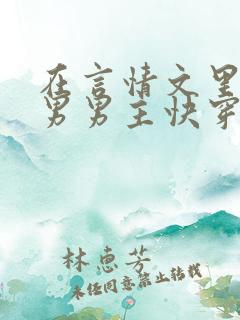 在言情文里
男男主快穿
林惠芳
未经同意禁止转载